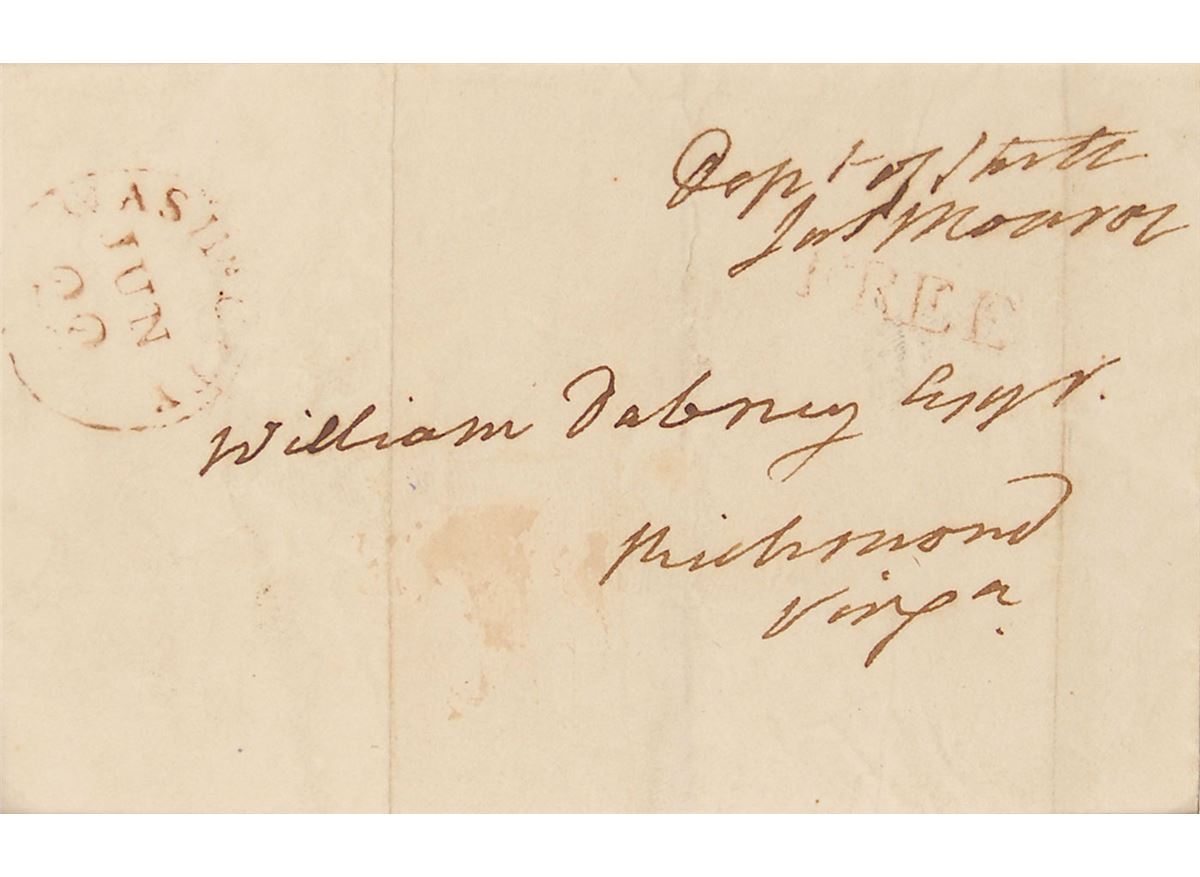 Dept of State
Jas Monroe
FREE
WASHING
JUN
William Dabney Esqr.
Richmond
Virga.